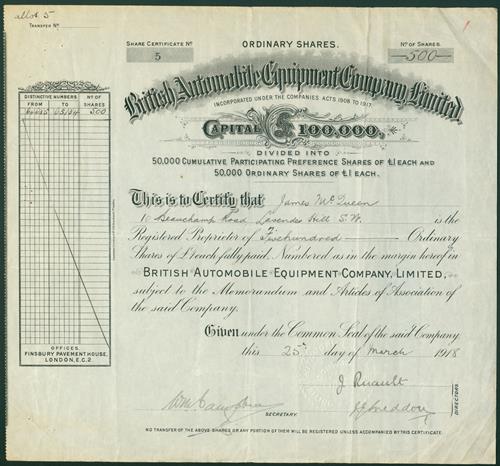 allot. 5
TRANSFER No
ORDINARY SHARES.
SHARE CERTIFICATE No
5
No OF SHARES.
500
British Automobile Equipment Company, Limited.
INCORPORATED UNDER THE COMPANIES ACTS 1908 TO 1917.
CAPITAL £100,000,
DIVIDED INTO
50,000 CUMULATIVE PARTICIPATING PREFERENCE SHARES OF £1 EACH AND
50,000 ORDINARY SHARES OF £1 EACH.
DISTINCTIVE NUMBERS
No OF SHARES
FROM
TO
500
This is to Certify that James McQueen
10 Beauchamp Road Lavender Hill S.W. is the
Registered Proprietor of Five hundred Ordinary
Shares of £1 each fully paid, Numbered as in the margin hereof in
BRITISH AUTOMOBILE EQUIPMENT COMPANY, LIMITED,
subject to the Memorandum and Articles of Association of
the said Company.
Given under the Common Seal of the said Company
this 25th day of March 1918
OFFICES.
FINSBURY PAVEMENT HOUSE,
LONDON, E.C.2.
SECRETARY.
DIRECTORS.
NO TRANSFER OF THE ABOVE SHARES OR ANY PORTION OF THEM WILL BE REGISTERED UNLESS ACCOMPANIED BY THIS CERTIFICATE.